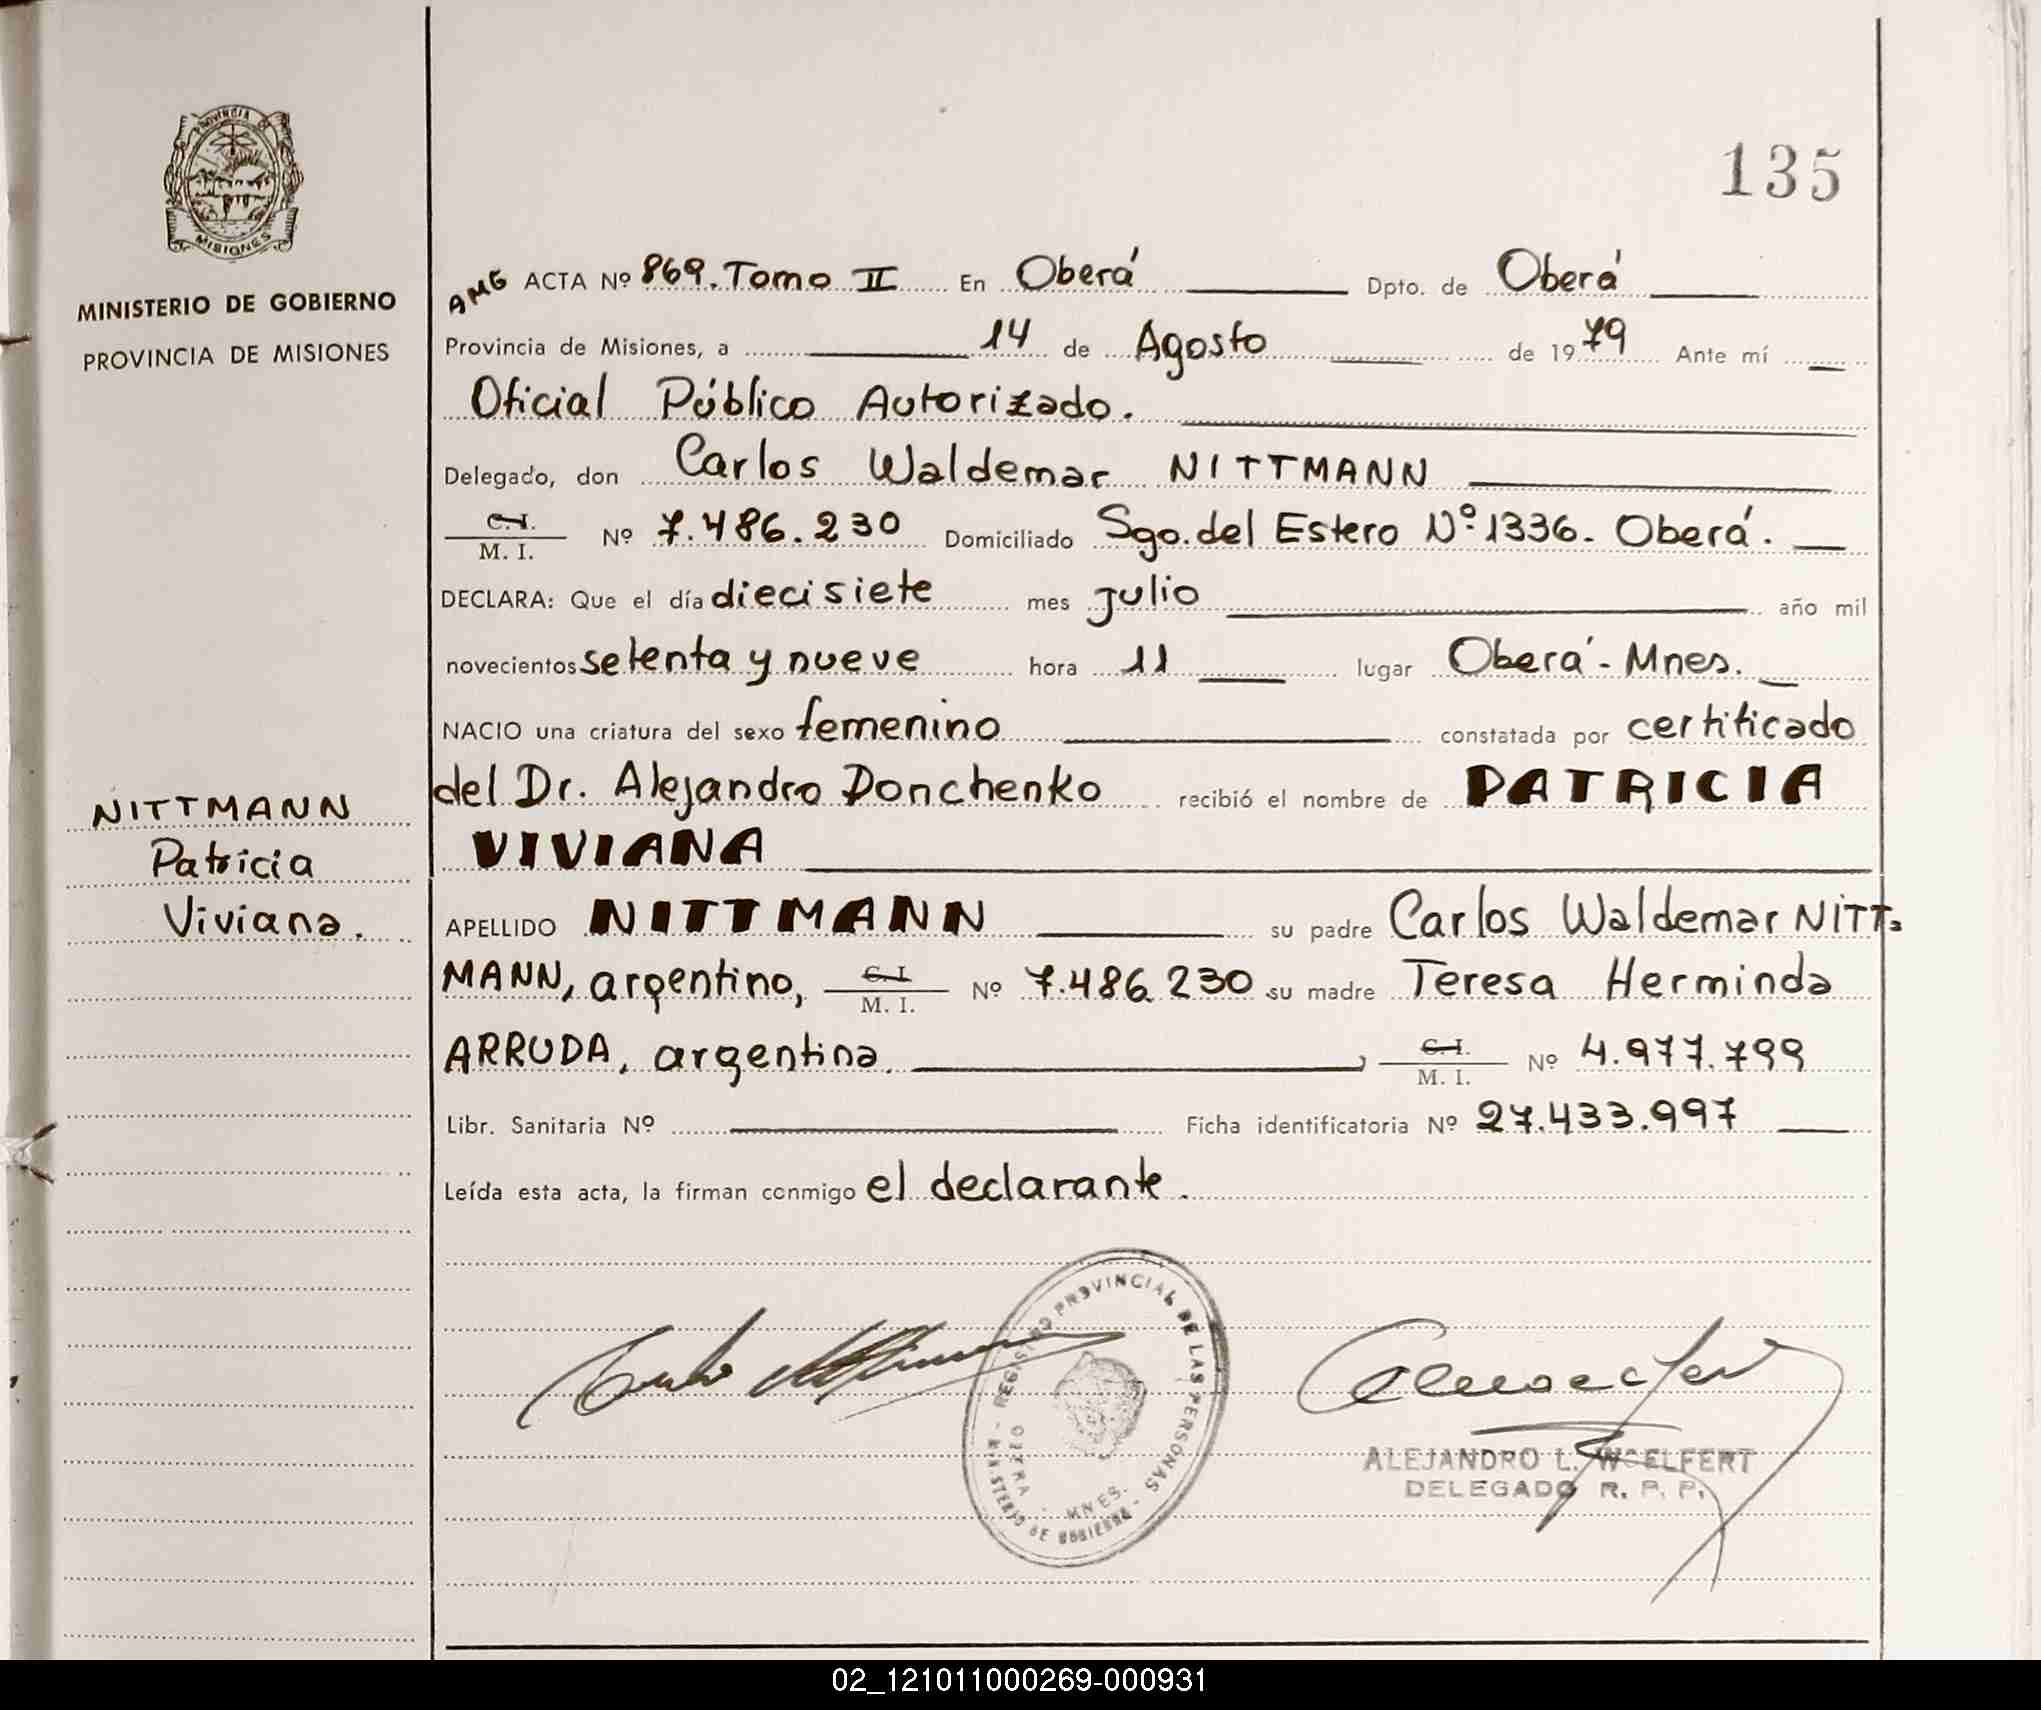 PROVINCIA DE
MISIONES
MINISTERIO DE GOBIERNO
PROVINCIA DE MISIONES
135
AMG ACTA Nº 869. Tomo II En Oberá Dpto. de Oberá
Provincia de Misiones, a 14 de Agosto de 1979 Ante mí
Oficial Público Autorizado.
Delegado, don Carlos Waldemar NITTMANN
C.I.
M. I. Nº 7.486.230 Domiciliado Sgo. del Estero Nº 1336. Oberá.
DECLARA: Que el día diecisiete mes julio año mil
novecientos setenta y nueve hora 11 lugar Oberá - Mnes.
NACIO una criatura del sexo femenino constatada por certificado
del Dr. Alejandro Donchenko recibió el nombre de PATRICIA
VIVIANA
NITTMANN
Patricia
Viviana.
APELLIDO NITTMANN su padre Carlos Waldemar NITT=
MANN, argentino, C.I. M. I. Nº 7.486.230 su madre Teresa Herminda
ARRUDA, argentina, C.I. M. I. Nº 4.977.799
Libr. Sanitaria Nº Ficha identificatoria Nº 27.433.997
Leída esta acta, la firman conmigo el declarante.
REGISTRO PROVINCIAL DE LAS PERSONAS
MINISTERIO DE GOBIERNO
OBERA - MNES.
ALEJANDRO L. WOELFERT
DELEGADO R. P. P.
02_121011000269-000931